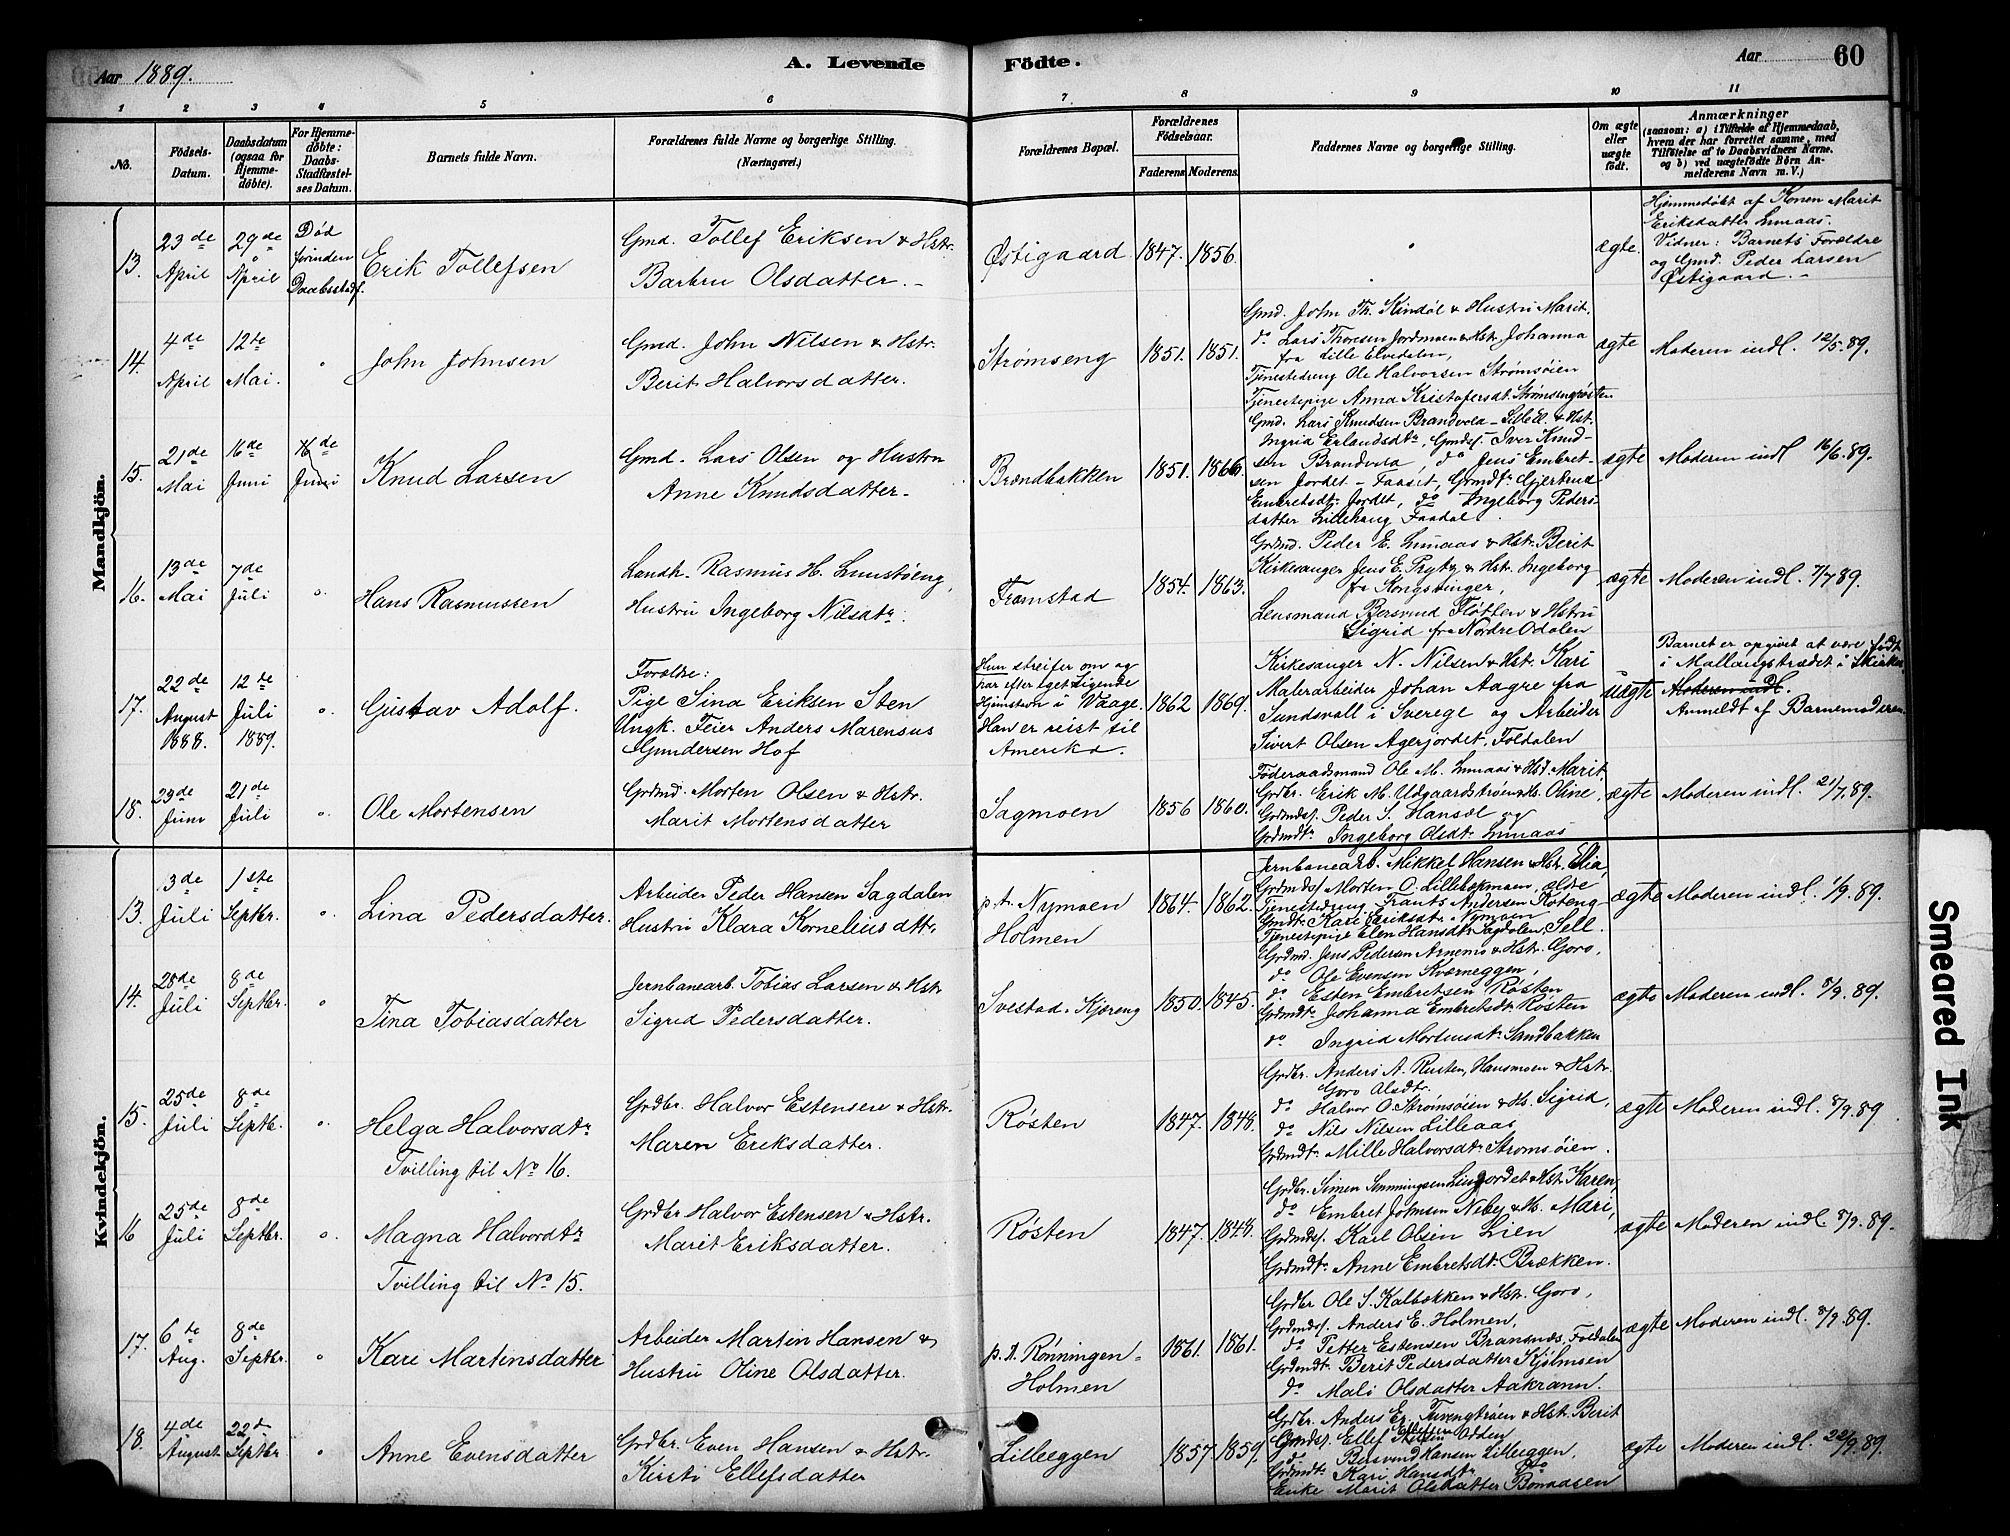 Aar 1889.
A. Levende Födte.
Aar
60
1 2 3 4 5 6 7 8 9 10 11
No.
Födsels-Datum.
Daabsdatum (ogsaa for Hjemmedöbte).
For Hjemmedöbte: Daabs-Stadfæstelses Datum.
Barnets fulde Navn.
Forældrenes fulde Navne og borgerlige Stilling. (Næringsvei.)
Forældrenes Bopæl.
Forældrenes Födselsaar.
Faderens. Moderens.
Faddernes Navne og borgerlige Stilling.
Om ægte eller uægte födt.
Anmærkninger
(saasom: a) i Tilfælde af Hjemmedaab, hvem der har forrettet samme, med Tilföielse af to Daabsvidners Navne, og b) ved uægtefödte Börn Anmelderens Navn m. V.)
Mandkjön.
13. 23de April 29de April Død forinden Daabsstadf.
Erik Tollefsen
Gmd. Tollef Eriksen & Hstr. Barbru Olsdatter.
Østigaard 1847. 1856.
ægte.
Hjemmedøbt af Konen Marit Eriksdatter Lunaas. Vidner: Barnets Forældre og Gmd. Peder Larsen Østigaard.
14. 4de April 12te Mai.
John Johnsen
Gmd. John Nilsen & Hstr. Berit Halvorsdatter.
Strømseng 1851. 1851.
Gmd. John Th. Kindøl & Hustru Marit,
do Lars Thoresen Jordmoen & Hst. Johanna
fra Lille Elvedalen,
Tjenestedreng Ole Halvorsen Strømsøien
Tjenestepige Anna Kristofersdt. Strømsengrøsten
ægte Moderen indl. 12/5.89.
15. 21de Mai 16de Juni 16de Juni
Knud Larsen
Gmd. Lars Olsen og Hustru Anne Knudsdatter.
Brændbakken 1851. 1866.
Gmd. Lars Knudsen Brandvola - Lille El. & Hst.
Ingrid Erlandsdtr, Gmdsf. Iver Knud-
sen Brandvola, do Jens Embret-
sen Jordet - Faaset, Gmdtr. Gjertrud
Embretsdtr. Jordet, do Ingeborg Peders-
datter Lillehaug Faadal.
ægte Moderen indl 16/6.89.
16. 13de Mai 7de Juli
Hans Rasmussen
Landh. Rasmus H. Lunstøeng, Hustru Ingeborg Nilsdtr.
Framstad 1854. 1863.
Grdmd. Peder E. Lunaas & Hstr. Berit
Kirkesanger Jens E. Prytz & Hstr. Ingeborg
fra Kongsvinger,
Lensmand Bersvend Fløtten & Hstru
Sigrid fra Nordre Odalen
ægte Moderen indl. 7/7 89.
17. 22de August 1888. 12te Juli 1889.
Gustav Adolf.
Forældre: Pige Sina Eriksen Sten
Ungk. Feier Anders Marensus Gundersen Hof
Hun streifer om og har efter eget Sigende Hjemstavn i Vaage. Han er reist til Amerika.
1862 1869.
Kirkesanger N. Nilsen & Hst. Kari
Malerarbeider Johan Aagre fra
Sundsvall i Sverige og Arbeider
Sivert Olsen Agerjordet, Foldalen
uægte
Barnet er opgivet at være født i Mallangstrædet i Skien. Moderen indl. Anmeldt af Barnemoderen.
18. 23de Juni 21de Juli
Ole Mortensen
Grdmd. Morten Olsen & Hstr. Marit Mortensdatter
Sagmoen 1856 1860.
Føderaadsmand Ole M. Lunaas & Hst. Marit,
Grdbr. Erik M. Udgaardstrøen & H. Oline,
Grdmdsf. Peder S. Hansøl og
Grdmdtr. Ingeborg Olsdtr. Lunaas
ægte Moderen indl. 21/7.89.
Kvindekjön.
13. 3de Juli 1ste Septbr.
Lina Pedersdatter.
Arbeider Peder Hansen Sagdalen
Hustru Klara Korneliusdtr.
p.t. Nymoen Holmen 1864. 1862.
Jernbanearb. Mikkel Hansen & Hst. Elia,
Grdmdsf. Morten O. Lillebækmoen, alore
Tjenestedreng Frants Andersen Køteng
Gmdtr. Kari Eriksdtr. Nymoen
Tjenestepige Elen Hansdtr. Sagdalen, Sell.
ægte Moderen indl. 1/9.89.
14. 28de Juli 8de Septbr.
Tina Tobiasdatter
Jernbanearb. Tobias Larsen & Hstr Sigrid Pedersdatter.
Svestad - Kjæreng 1850. 1845.
Grdmd. Jens Pedersen Arnemo & Hstr. Goro,
do Ole Evensen Kværneggen,
do Esten Embretsen Røsten
Grdmdtr. Johanna Embretsdt. Røsten
do Ingrid Mortensdtr. Sandbakken
ægte Moderen indl. 8/9.89.
15. 25de Juli 8de Septb.
Helga Halvorsdtr.
Tvilling til No 16.
Grdbr. Halvor Estensen & Hstr. Maren Eriksdatter.
Røsten 1847. 1848.
Grdbr. Anders A. Rusten, Hansmoen & Hstr.
Goro Olsdtr.
do Halvor O. Strømsøien & Hs. Sigrid,
do Nils Nilsen Lilleaas
Grdmdtr. Mille Halvorsdtr. Strømsøien.
ægte Moderen indl. 8/9.89
16 25de Juli 8de Septbr.
Magna Halvordtr
Tvilling til No 15.
Grdbr Halvor Estensen & Hstr. Marit Eriksdatter.
Røsten 1847. 1848.
Grdbr. Simen Simmingsen Lingjordet & Hst. Karen,
do Embret Johnsen Neby & H. Mari,
Grdmdsf. Karl Olsen Lien
Grdmdtr. Anne Embretsdtr. Brækken.
ægte Moderen indl. 8/9.89.
17. 6te Aug. 8de Septbr.
Kari Martinsdatter
Arbeider Martin Hansen & Hustru Oline Olsdatter.
p.t. Rønningen - Holmen 1861. 1861.
Grdbr Ole S. Kalbækken & Hst. Goro,
Grdmdsf. Anders E. Holmen,
do Petter Estensen Bransnæs, Foldalen
Grdmdt. Berit Pedersdatter Kjølmsen
do Mali Olsdatter Aakrann.
ægte Moderen indl. 8/9.89.
18. 4de August 22d Septbr.
Anne Evensdatter
Grdbr. Even Hansen & Hstr. Kirsti Ellefsdatter
Lilleeggen 1857. 1859.
Grdbr. Anders Er. Tuvengtrøen & Hst. Berit
Gmdsf. Ellef Ellefsen Odden
do Bersvend Hansen Lilleeggen,
Grdmdtr. Kari Hansdtr. do
Enke Marit Olsdatter Bonadsen
ægte Moderen indl. 22/9.89.
Smeared Ink